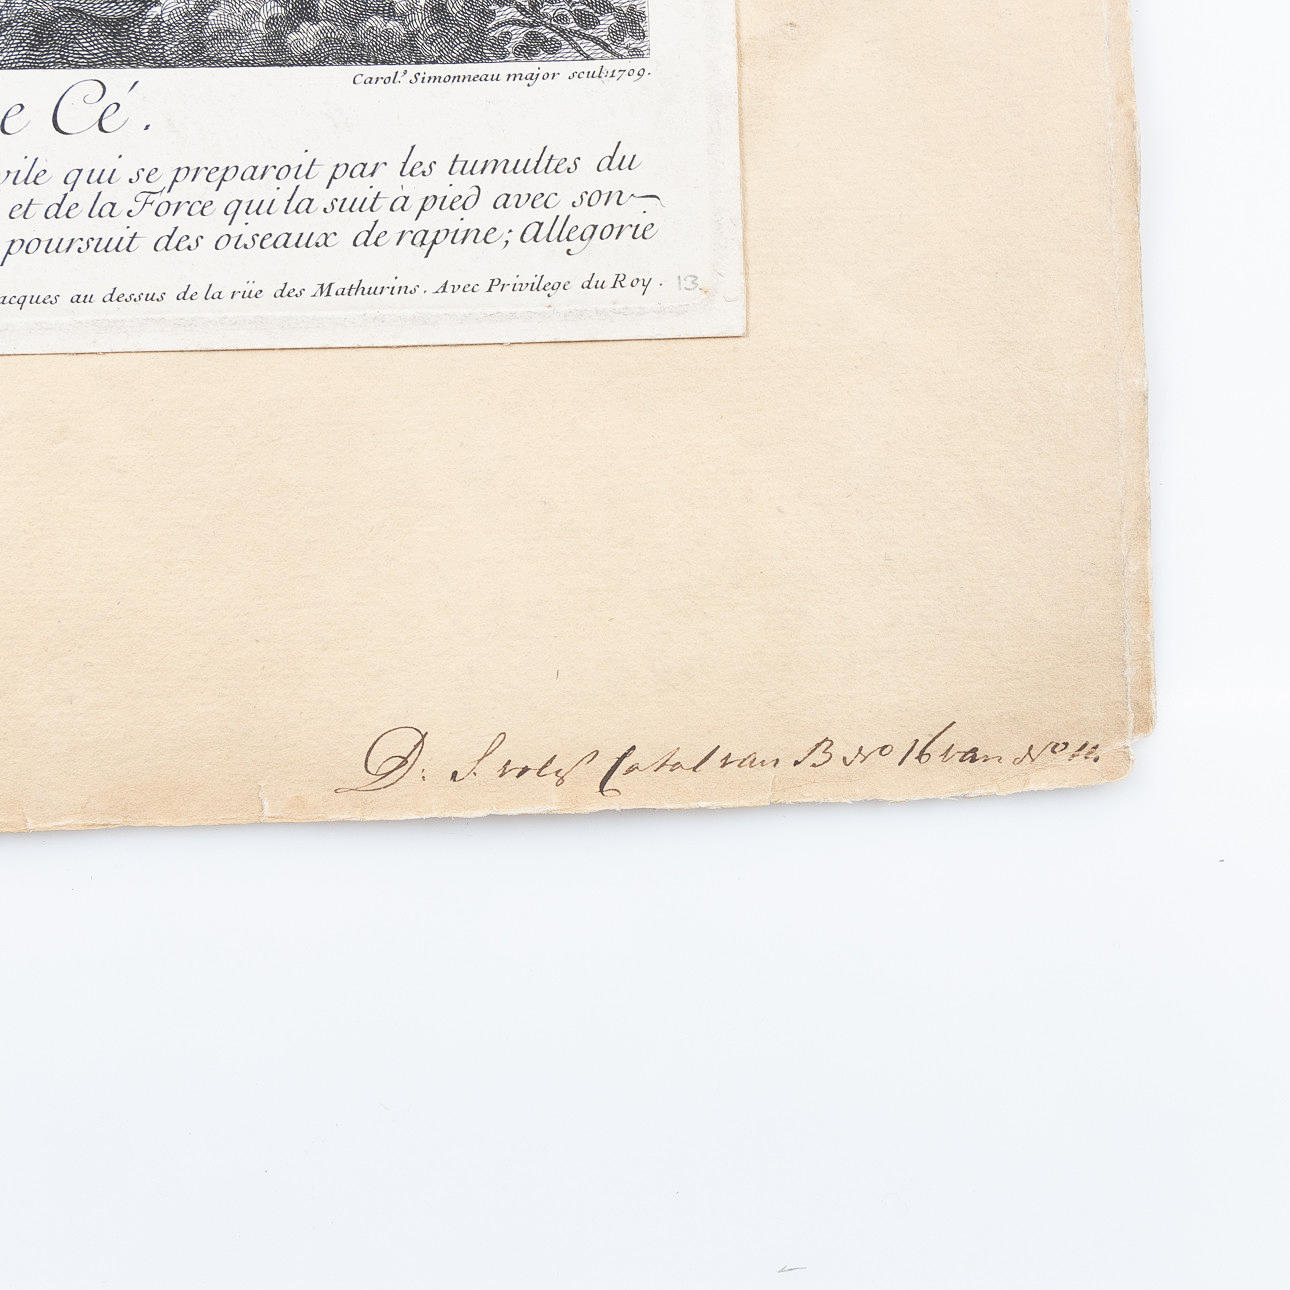 Carol.s Simonneau major scul. 1709.
e Cé.
vile qui se preparoit par les tumultes du
et de la Force qui la suit à pied avec son
poursuit des oiseaux de rapine; Allegorie
acques au dessus de la rüe des Mathurins. Avec Privilege du Roy.
13.
D: Catal van B No 16 van No